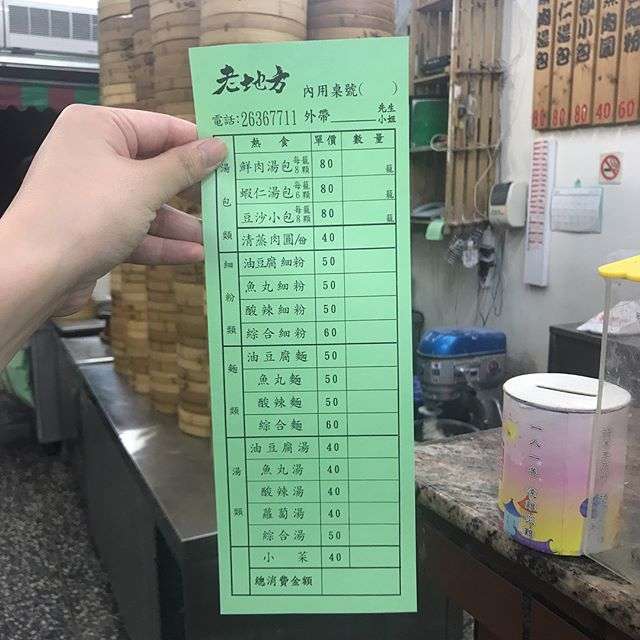 老地方 內用桌號( )
電話:26367711 外帶 先生 小姐
熱食 單價 數量
湯包類
鮮肉湯包 每籠8顆 80 籠
蝦仁湯包 每籠6顆 80 籠
豆沙小包 每籠8顆 80 籠
清蒸肉圓/份 40
細粉類
油豆腐細粉 50
魚丸細粉 50
酸辣細粉 50
綜合細粉 60
麵類
油豆腐麵 50
魚丸麵 50
酸辣麵 50
綜合麵 60
湯類
油豆腐湯 40
魚丸湯 40
酸辣湯 40
蘿蔔湯 40
綜合湯 50
小菜 40
總消費金額
80 80 80 40 60